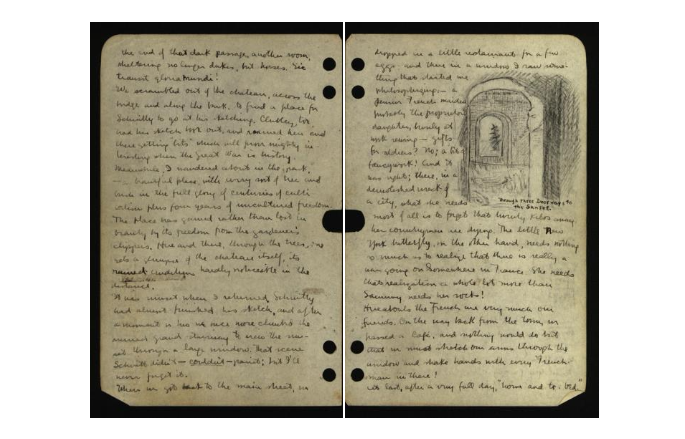 the end of that dark passage, another room,
sheltering no longer dukes, but horses. Sic
transit gloria mundi!
We scrambled out of the chateau, across the
bridge and along the bank, to find a place for
Schmitty to go at his sketching. Clubby, too
had his sketch book out, and roamed here and
there getting bits which will prove mighty in
when the great War is history
Meanwhile, I wandered about in the park,
a beautiful place, with every sort of tree and
bush in the full glory of centuries of culti-
vation plus four years of uncultured freedom.
The place was gained rather than lost in
beauty by its freedom from the gardener's
clippers. Here and there, through the trees, one
gets a glimpse of the chateau itself, its
ruined condition hardly noticeable in the
distance.
It was sunset when I returned. Schmitty
had almost finished his sketch, and after
a moment or two we once more climbed the
ruined grand stairway to view the sun-
set through a large window. That scene
Schmitt didn't - couldn't - paint; but I'll
never forget it.
When we got back to the main street, we
dropped in a little restaurant for a few
eggs - and there in a window I saw some-
thing that started me
philosophizing - a
French maiden
probably the proprietor's
daughter, busily at
work sewing - gifts
for soldiers? No; a bit of
fancywork! And it
was right; there, in a
demolished wreck of
a city, what she needs
most of all is to forget that twenty miles away
her countrymen are dying. The little New
York butterfly, on the other hand, needs nothing
so much as to realize that there is really a
war going on somewhere in France. She needs
that realization a whole lot more than
Sammy needs her socks!
the French are very much our
friends. On the way back from the town, we
passed a café, and nothing would do but
that we must shoot our arms through the
window and shake hands with every French-
man in there!
At last, after a very full day, "home and to bed"
Through three Doorways to
the Sunset.